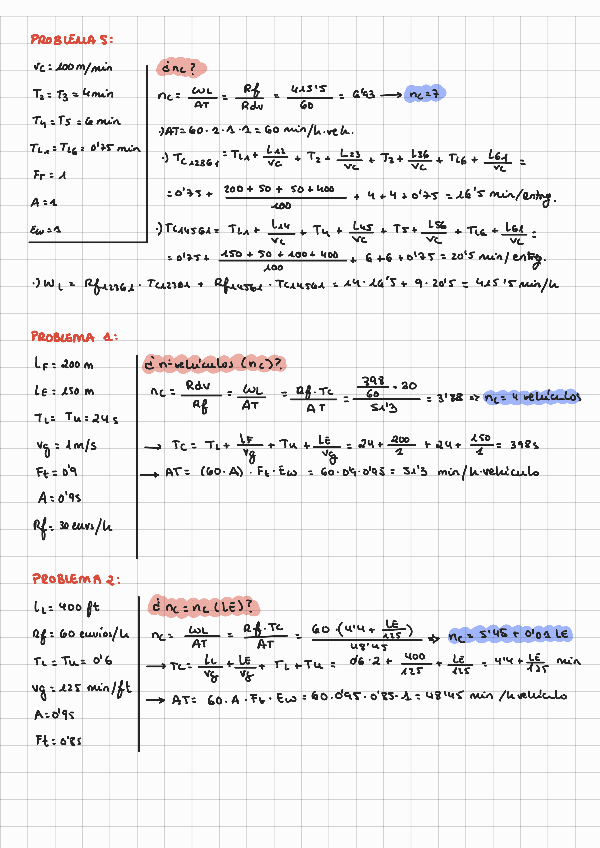 PROBLEMA 5:
vc = 100 m/min
T2 = T3 = 4 min
T4 = T5 = 6 min
TL1 = TL6 = 0'75 min
FT = 1
A = 1
Ew = 1
¿nc?
nc = WL/AT = Rf/Rdv = 415'5/60 = 6'93 → nc = 7
·) AT = 60 · 1 · 1 · 1 = 60 min/h·veh.
·) TC12361 = TL1 + L12/vc + T2 + L23/vc + T3 + L36/vc + TL6 + L61/vc =
= 0'75 + (200 + 50 + 50 + 400)/100 + 4 + 4 + 0'75 = 16'5 min/entrg.
·) TC14561 = TL1 + L14/vc + T4 + L45/vc + T5 + L56/vc + TL6 + L61/vc =
= 0'75 + (150 + 50 + 100 + 400)/100 + 6 + 6 + 0'75 = 20'5 min/entrg.
·) WL = Rf12361 · TC12361 + Rf14561 · TC14561 = 14 · 16'5 + 9 · 20'5 = 415'5 min/h
PROBLEMA 1:
LF = 200 m
LE = 150 m
TL = Tu = 24 s
vg = 1 m/s
Ft = 0'9
A = 0'95
Rf = 30 envs/h
¿nº vehículos (nc)?
nc = Rdv/Rf = WL/AT = Rf · TC/AT = (398/60 · 30)/51'3 = 3'88 ⇒ nc = 4 vehículos
→ TC = TL + LF/vg + Tu + LE/vg = 24 + 200/1 + 24 + 150/1 = 398 s
→ AT = (60 · A) · Ft · Ew = 60 · 0'9 · 0'95 = 51'3 min/h·vehículo
PROBLEMA 2:
LL = 400 ft
Rf = 60 envíos/h
TL = Tu = 0'6
vg = 125 min/ft
A = 0'95
Ft = 0'85
¿nc = nc (LE)?
nc = WL/AT = Rf · TC/AT = 60 · (4'4 + LE/125)/48'45 ⇒ nc = 5'45 + 0'01 LE
→ TC = LL/vg + LE/vg + TL + Tu = 0'6 · 2 + 400/125 + LE/125 = 4'4 + LE/125 min
→ AT = 60 · A · Ft · Ew = 60 · 0'95 · 0'85 · 1 = 48'45 min/h vehículo